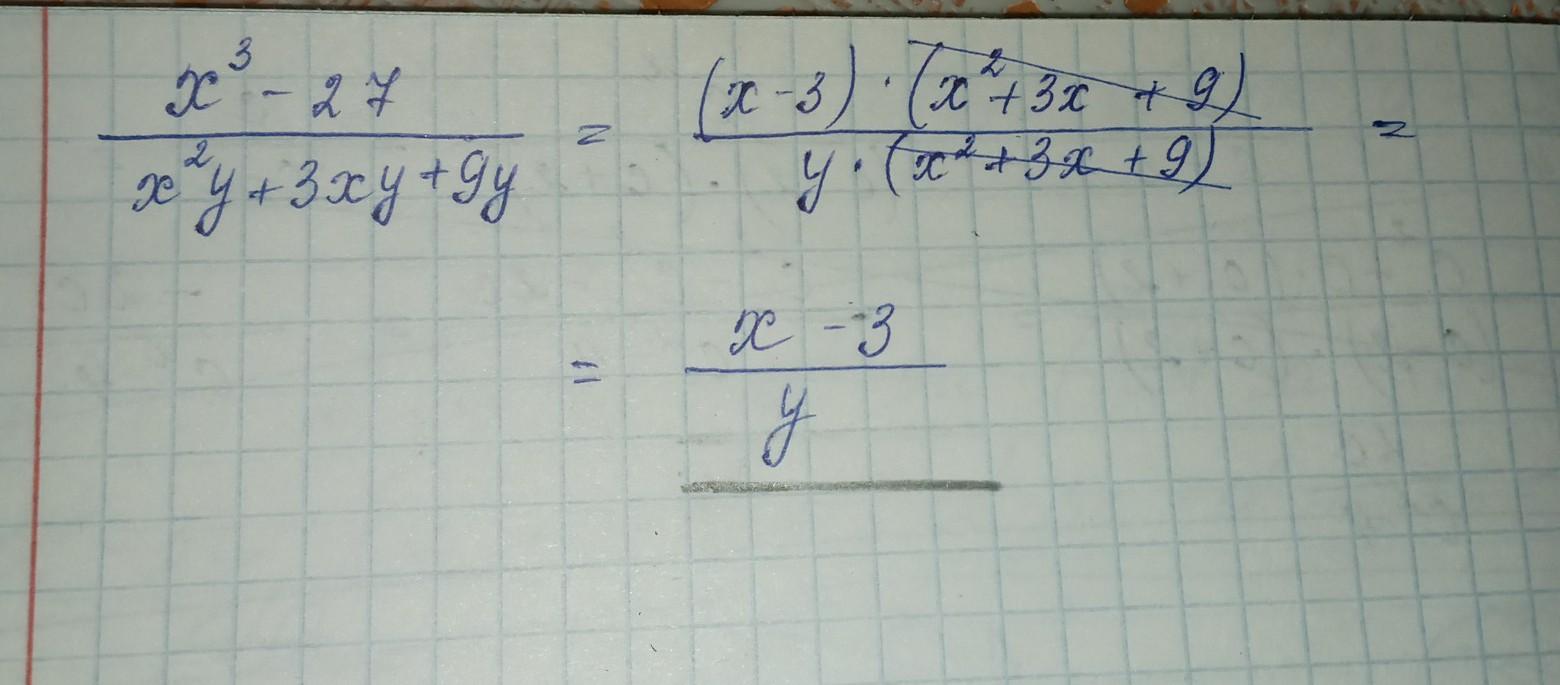 x³ - 27 / x²y + 3xy + 9y = (x - 3) · (x² + 3x + 9) / y · (x² + 3x + 9) =
= x - 3 / y